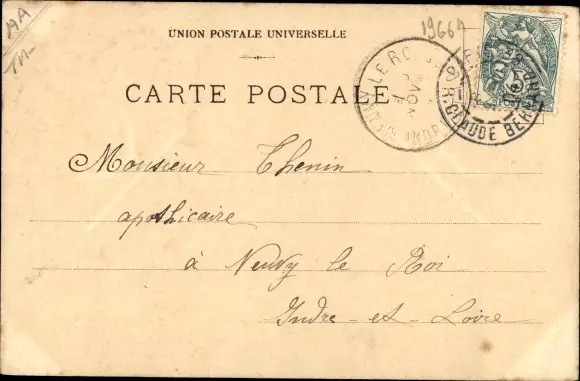 19A
19667
UNION POSTALE UNIVERSELLE
CARTE POSTALE
R. CLAUDE BER
Monsieur Thenin
apothicaire
à Neuvy le Roi
Indre-et-Loire